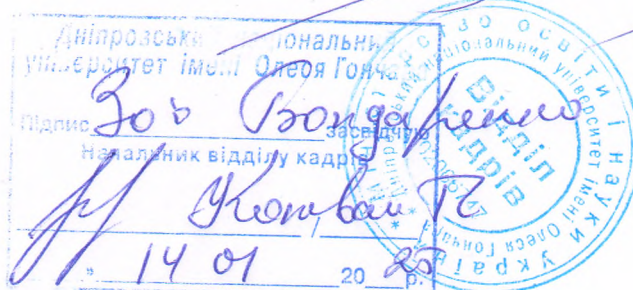 Дніпровський національний
університет імені Олеся Гончара
Підпис Зої Бондаренко засвідчую
Начальник відділу кадрів
14 01 2025 р.
МІНІСТЕРСТВО ОСВІТИ І НАУКИ УКРАЇНИ
Дніпровський національний університет імені Олеся Гончара
Відділ
кадрів